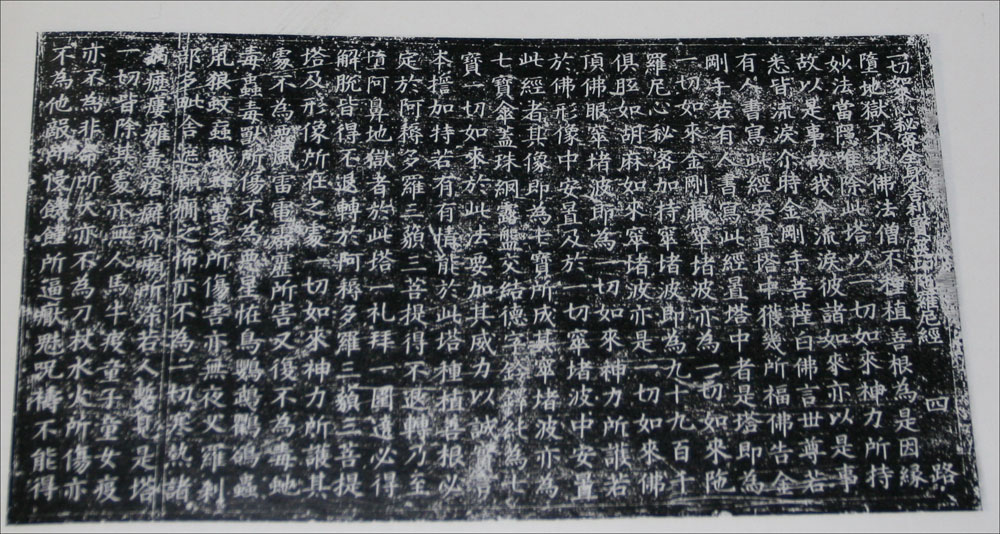 一切如來秘密全身舍利寶篋印陀羅尼經 四 路
墮地獄不求佛法僧不種植善根為是因緣
妙法當隱唯除此塔以一切如來神力所持
故以是事故我今流淚彼諸如來亦以是事
悉皆流淚尒時金剛手菩薩白佛言世尊若
有人書寫此經安置塔中獲幾所福佛告金
剛手若有人書寫此經置塔中者是塔即為
一切如來金剛藏窣堵波亦為一切如來陁
羅尼心秘密加持窣堵波即為九十九百千
俱胝如胡麻如來窣堵波亦是一切如來佛
頂佛眼窣堵波即為一切如來神力所護若
於佛形像中安置及於一切窣堵波中安置
此經者其像即為七寶所成其窣堵波亦為
七寶傘蓋珠網露盤交結德字鈴鐸純為七
寶一切如來於此法要加其威力以誠實言
本誓加持若有有情能於此塔種植善根必
定於阿耨多羅三藐三菩提得不退轉乃至
墮阿鼻地獄者於此塔一礼拜一圍遶必得
解脫皆得不退轉於阿耨多羅三藐三菩提
塔及形像所在之處一切如來神力所護其
處不為惡風雷電霹靂所害又復不為毒虵
毒蟲毒獸所傷不為惡星怪鳥鸚鵡鸜鵒蟲
鼠狼蚊蝱蠍蜂蠆之所傷害亦無夜叉羅剎
部多毗舍遮癲癇之怖亦不為一切寒熱諸
病癧瘻癰毒瘡癬疥癩所染若人暫見是塔
一切皆除其處亦無人馬牛疫童子童女疫
亦不為非命所夭亦不為刀杖水火所傷亦
不為他敵所侵饑饉所逼厭魅呪禱不能得